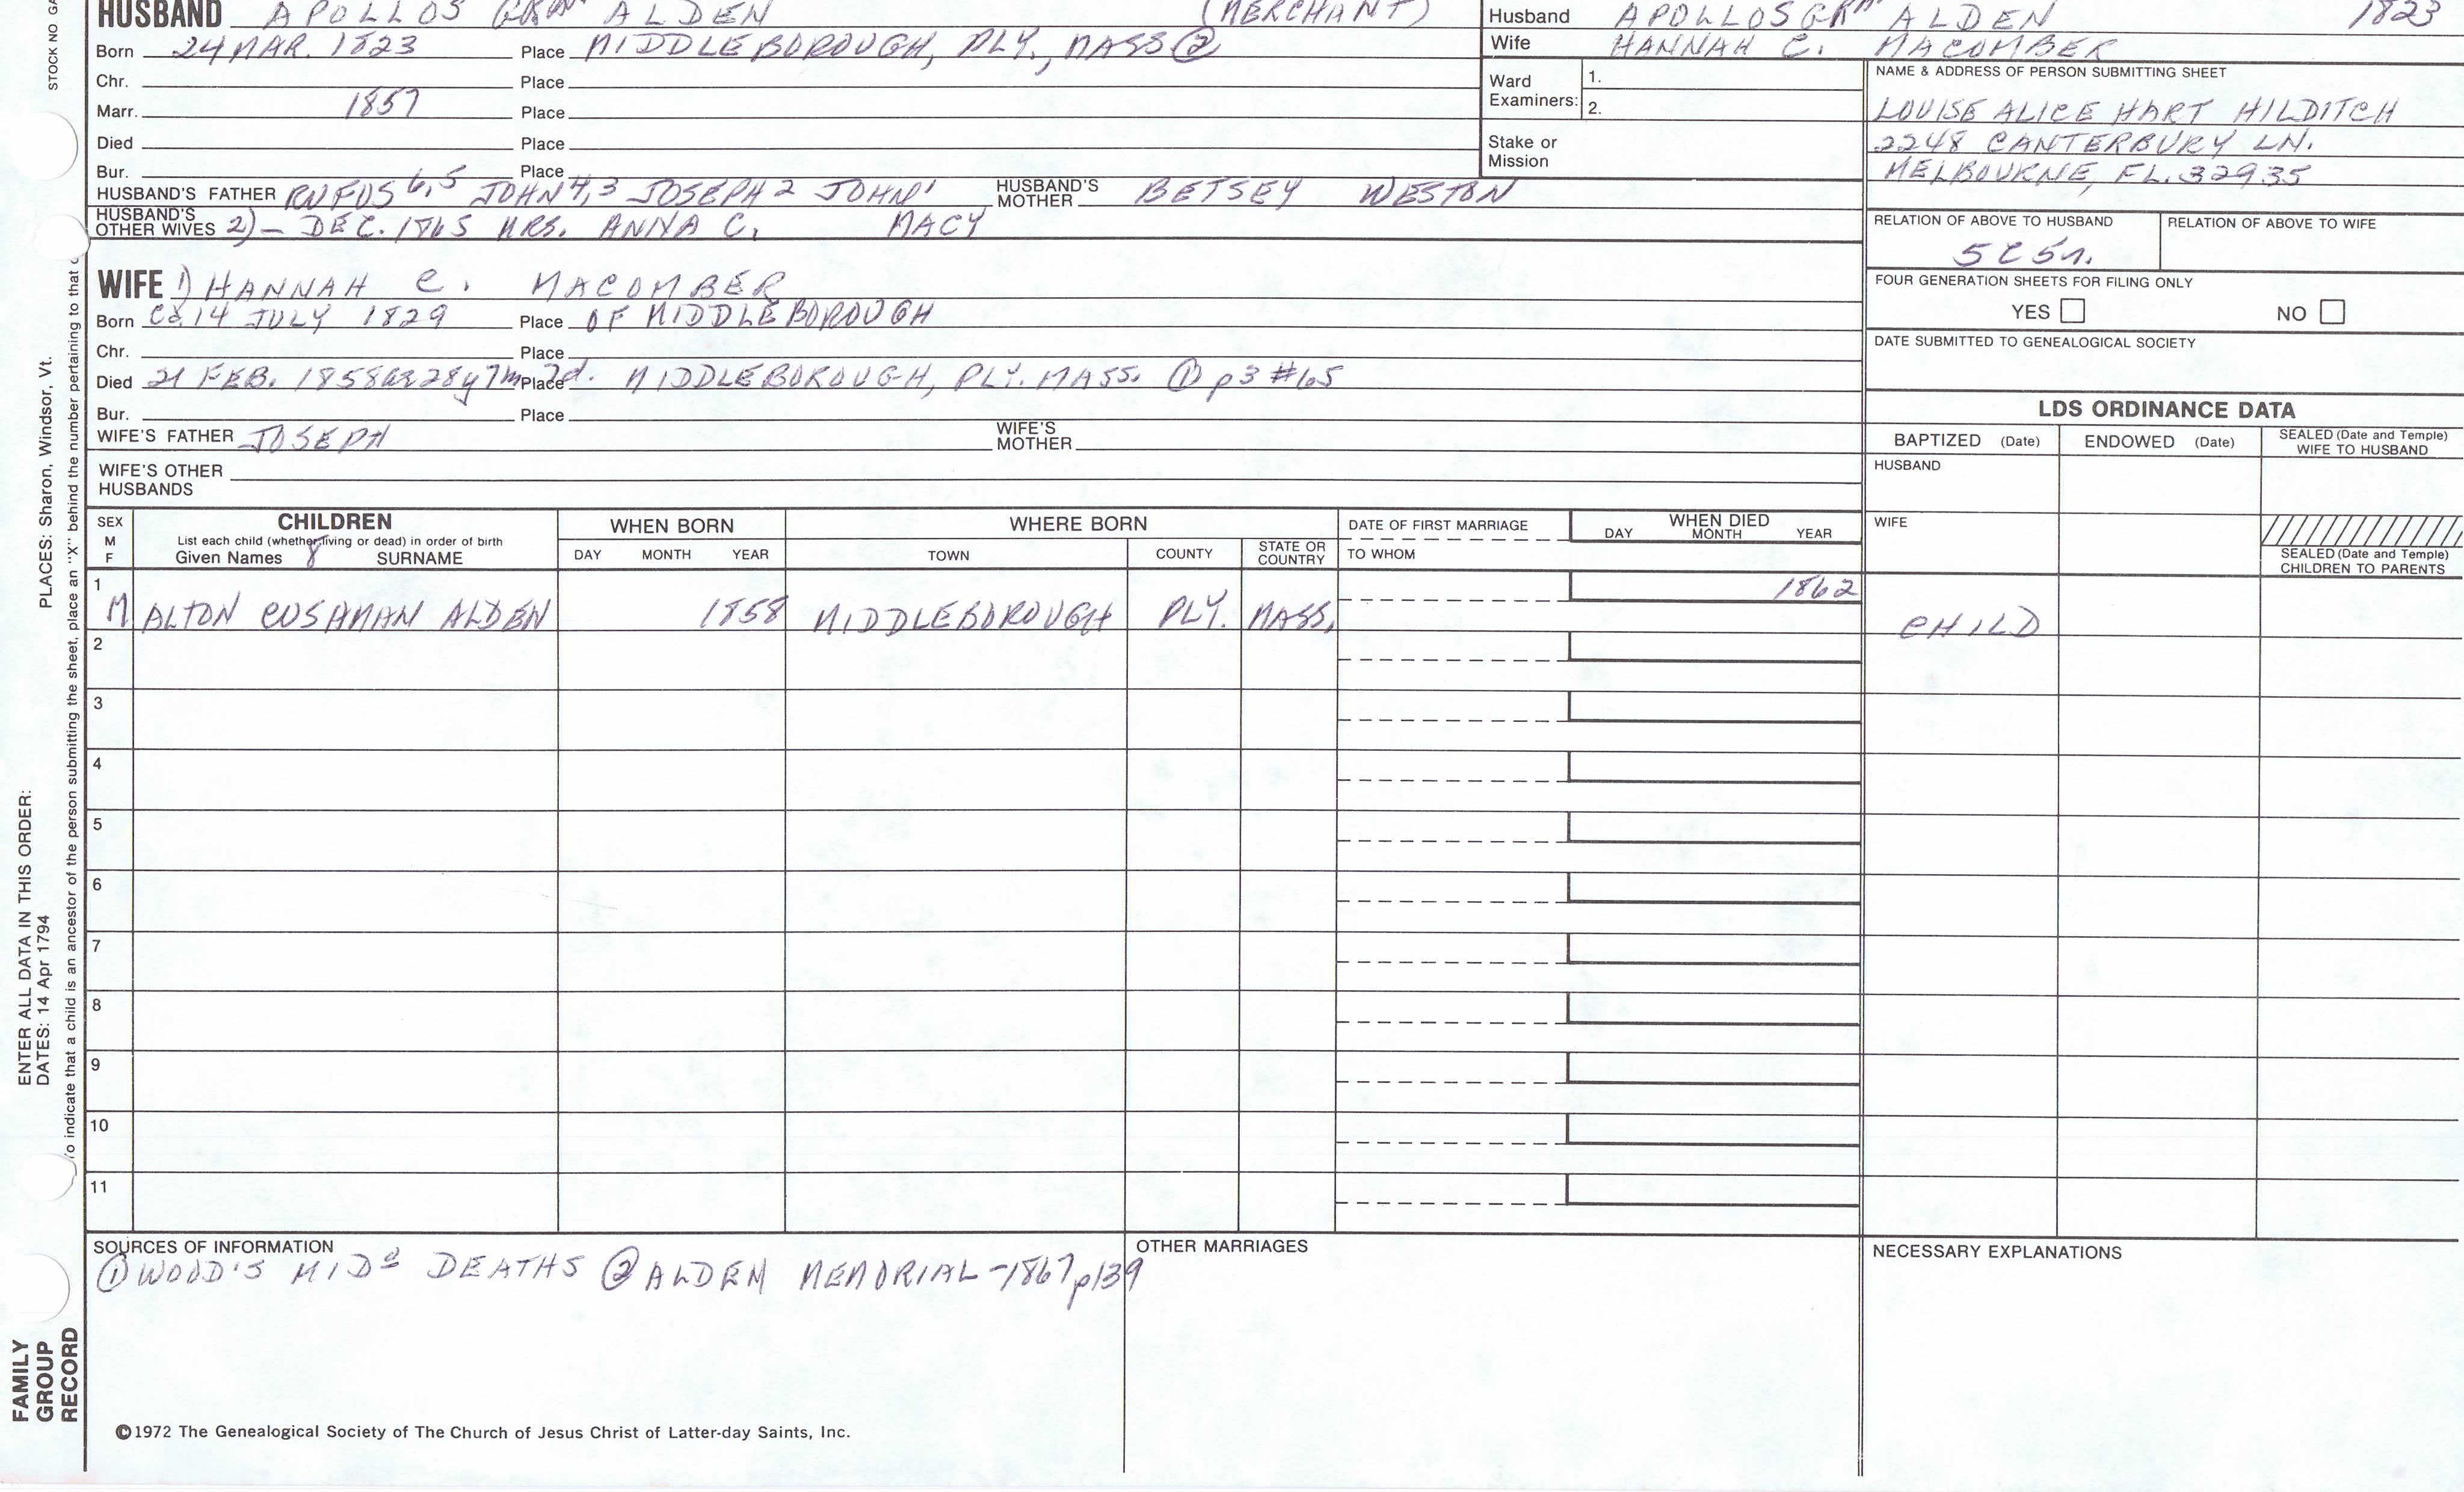 HUSBAND APOLLOS ALDEN (MERCHANT)
Born 24 MAR. 1823 Place MIDDLEBOROUGH, PLY., MASS ②
Chr. Place
Marr. 1857 Place
Died Place
Bur. Place
HUSBAND'S FATHER RUFUS 6,5 JOHN 4,3 JOSEPH 2 JOHN 1 HUSBAND'S MOTHER BETSEY WESTON
HUSBAND'S OTHER WIVES 2) – DEC. 1865 MRS. ANNA C. MACY
WIFE 1) HANNAH C. MACOMBER
Born Ca 14 JULY 1829 Place OF MIDDLEBOROUGH
Chr. Place
Died 21 FEB. 1858 ae 28y 7m 7d. Place MIDDLEBOROUGH, PLY. MASS. ① p3 #65
Bur. Place
WIFE'S FATHER JOSEPH WIFE'S MOTHER
WIFE'S OTHER HUSBANDS
Husband APOLLOS ALDEN 1823
Wife HANNAH C. MACOMBER
Ward Examiners: 1.
2.
Stake or Mission
NAME & ADDRESS OF PERSON SUBMITTING SHEET
LOUISE ALICE HART HILDITCH
2248 CANTERBURY LN.
MELBOURNE, FL. 32935
RELATION OF ABOVE TO HUSBAND RELATION OF ABOVE TO WIFE
FOUR GENERATION SHEETS FOR FILING ONLY
YES NO
DATE SUBMITTED TO GENEALOGICAL SOCIETY
LDS ORDINANCE DATA
BAPTIZED (Date) ENDOWED (Date) SEALED (Date and Temple) WIFE TO HUSBAND
HUSBAND
WIFE
SEALED (Date and Temple) CHILDREN TO PARENTS
SEX M F CHILDREN WHEN BORN WHERE BORN DATE OF FIRST MARRIAGE WHEN DIED
List each child (whether living or dead) in order of birth
Given Names 8 SURNAME DAY MONTH YEAR TOWN COUNTY STATE OR COUNTRY TO WHOM DAY MONTH YEAR
1 M ALTON CUSHMAN ALDEN 1858 MIDDLEBOROUGH PLY. MASS. 1862 CHILD
2
3
4
5
6
7
8
9
10
11
SOURCES OF INFORMATION
① WOOD'S MIDᵒ DEATHS ② ALDEN MEMORIAL - 1867 p139
OTHER MARRIAGES
NECESSARY EXPLANATIONS
©1972 The Genealogical Society of The Church of Jesus Christ of Latter-day Saints, Inc.
STOCK NO GA
PLACES: Sharon, Windsor, Vt.
ENTER ALL DATA IN THIS ORDER:
DATES: 14 Apr 1794
To indicate that a child is an ancestor of the person submitting the sheet, place an "X" behind the number pertaining to that
FAMILY GROUP RECORD